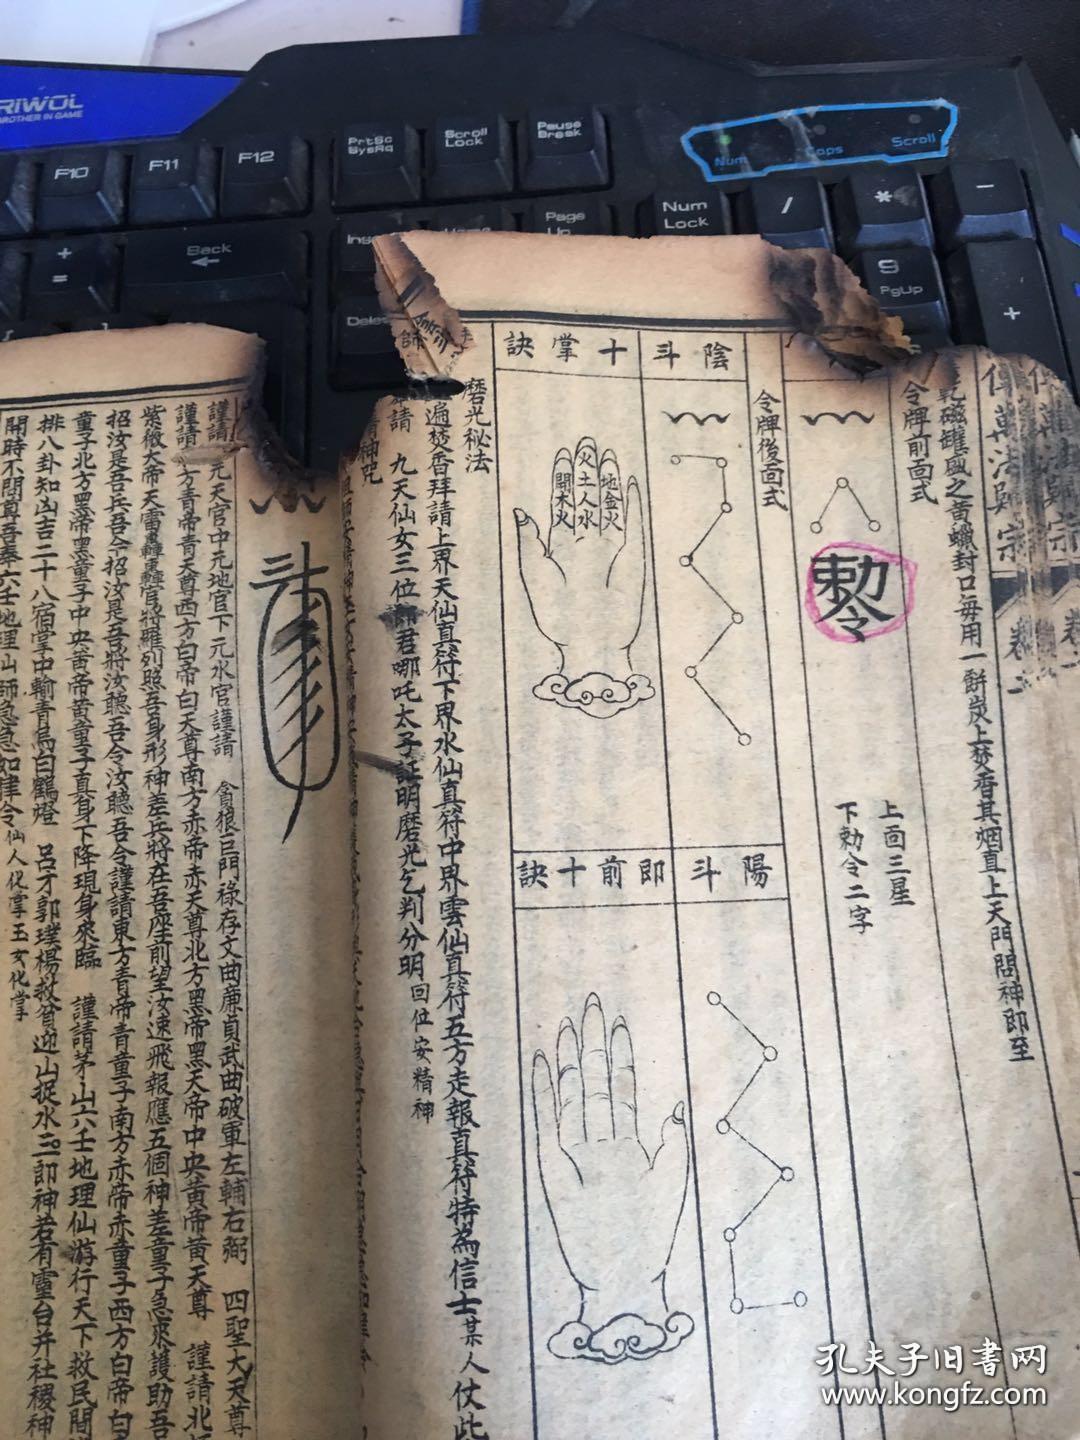 RIWOL
BROTHER IN GAME
F10
F11
F12
PrtSc
SysRq
Scroll
Lock
Pause
Break
Num
Caps
Scroll
Page
Up
Num
Lock
/
*
-
+
=
Back
9
PgUp
+
傳萬法歸宗
卷二
磁罐盛之黃蠟封口每用一餅炭上焚香其烟直上天門問神即至
令牌前面式
敕令
上面三星
下勅令二字
令牌後面式
陰斗
陽斗
十掌訣
火土人水
地金火
開木火
即前十訣
磨光秘法
遍焚香拜請上界天仙真符下界水仙真符中界雲仙真符五方走報真符特為信士某人仗此
請 九天仙女三位郎君哪吒太子証明磨光乞判分明回位安精神
神咒
謹請 元天官中元地官下元水官謹請 貪狼巨門祿存文曲廉貞武曲破軍左輔右弼 四聖大天尊
謹請 方青帝青天尊西方白帝白天尊南方赤帝赤天尊北方黑帝黑天帝中央黃帝黃天尊 謹請北
紫微大帝天雷轟轟官將羅列照吾身形神差兵將在吾座前望汝速飛報應五個神差童子急來護助吾
招汝是吾兵吾令招汝是吾將汝聽吾令汝聽吾令謹請東方青帝青童子南方赤帝赤童子西方白帝白
童子北方黑帝黑童子中央黃帝黃童子真身下降現身來臨 謹請茅山六壬地理仙游行天下救民間
排八卦知凶吉二十八宿掌中輸青烏白鶴燈 呂才郭璞楊救貧迎山捉水二郎神若有靈台并社稷神
開時不問尊吾奉六壬地理山師急急如律令仙人化掌玉女化掌
孔夫子旧書网
www.kongfz.com